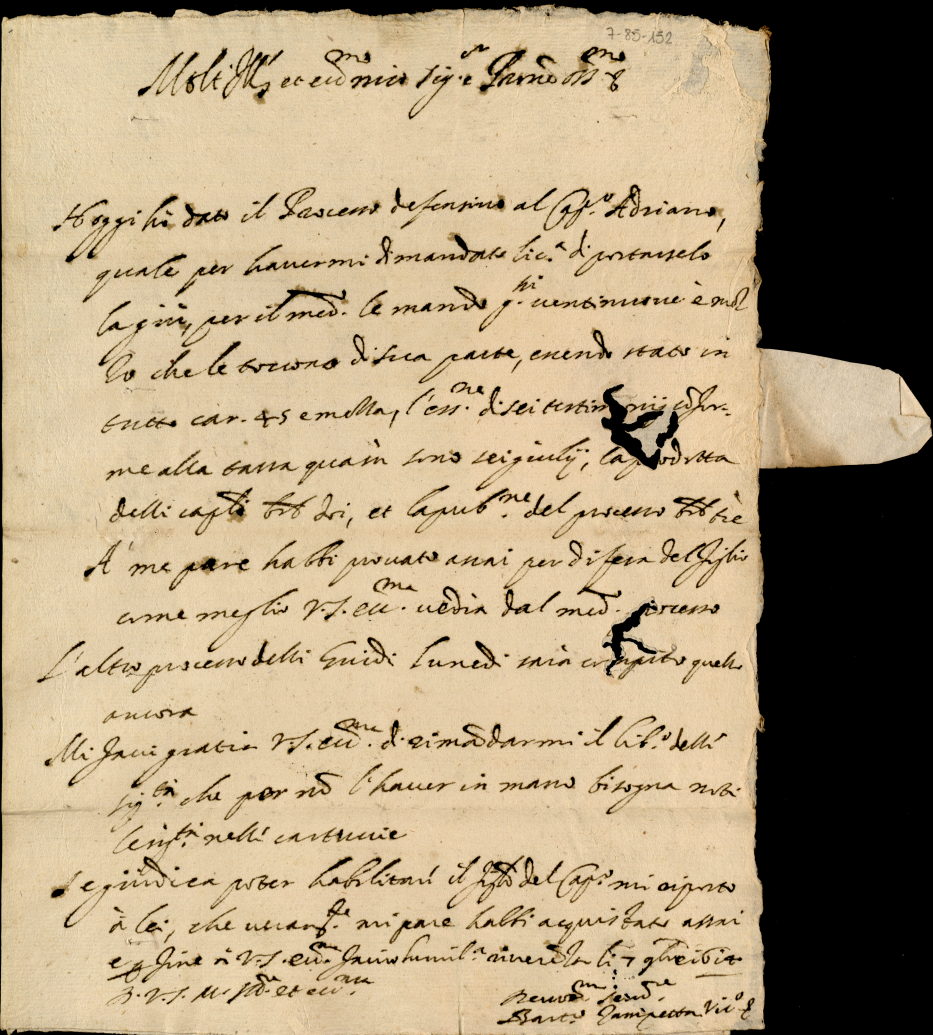 7-85-152
Molt Ill.^s et ecc.^mo mio sig.^r e Pa͠rne oss.^mo
Hoggi hò dato il Processo defensivo al Cap.^o Adriano,
quale per havermi dimandato lic.^a di portarselo
la giù, per il med.^o le mando g.^li ventinove è mez
zo che le toccono di sua parte, essendo stato in
tutto car. 45 e mezza, l'ess.^ne di sei testimonij confor-
me alla tassa quà in sono sei giulij, la prodotta
delli capli doi, et la pub.^ne del processo trè
A me pare habbi provato assai per difesa del figlio
come meglio V.S. ecc.^ma vedrà dal med.^o processo
L'altro processo delli Guidi Lunedi sarà compito quello
ancora
Mi facci gratia V.S. ecc.^ma di rima͠darmi il lib.^o delli
che per no͠ l'haver in mano bisogna noti
nelli cartuccie
Se giudica poter habilitarsi il figlio del Cap.^o mi riporto
à lei, che mi pare habbi acquistato assai
e q͠ fine à V.S. ecc.^ma faccio humil.^a riverenza li 7
D. V. S. M. Ill.^re et ecc.^ma
Devo.^mo ser.^re
Bart.^o Zampetta Vic.^o